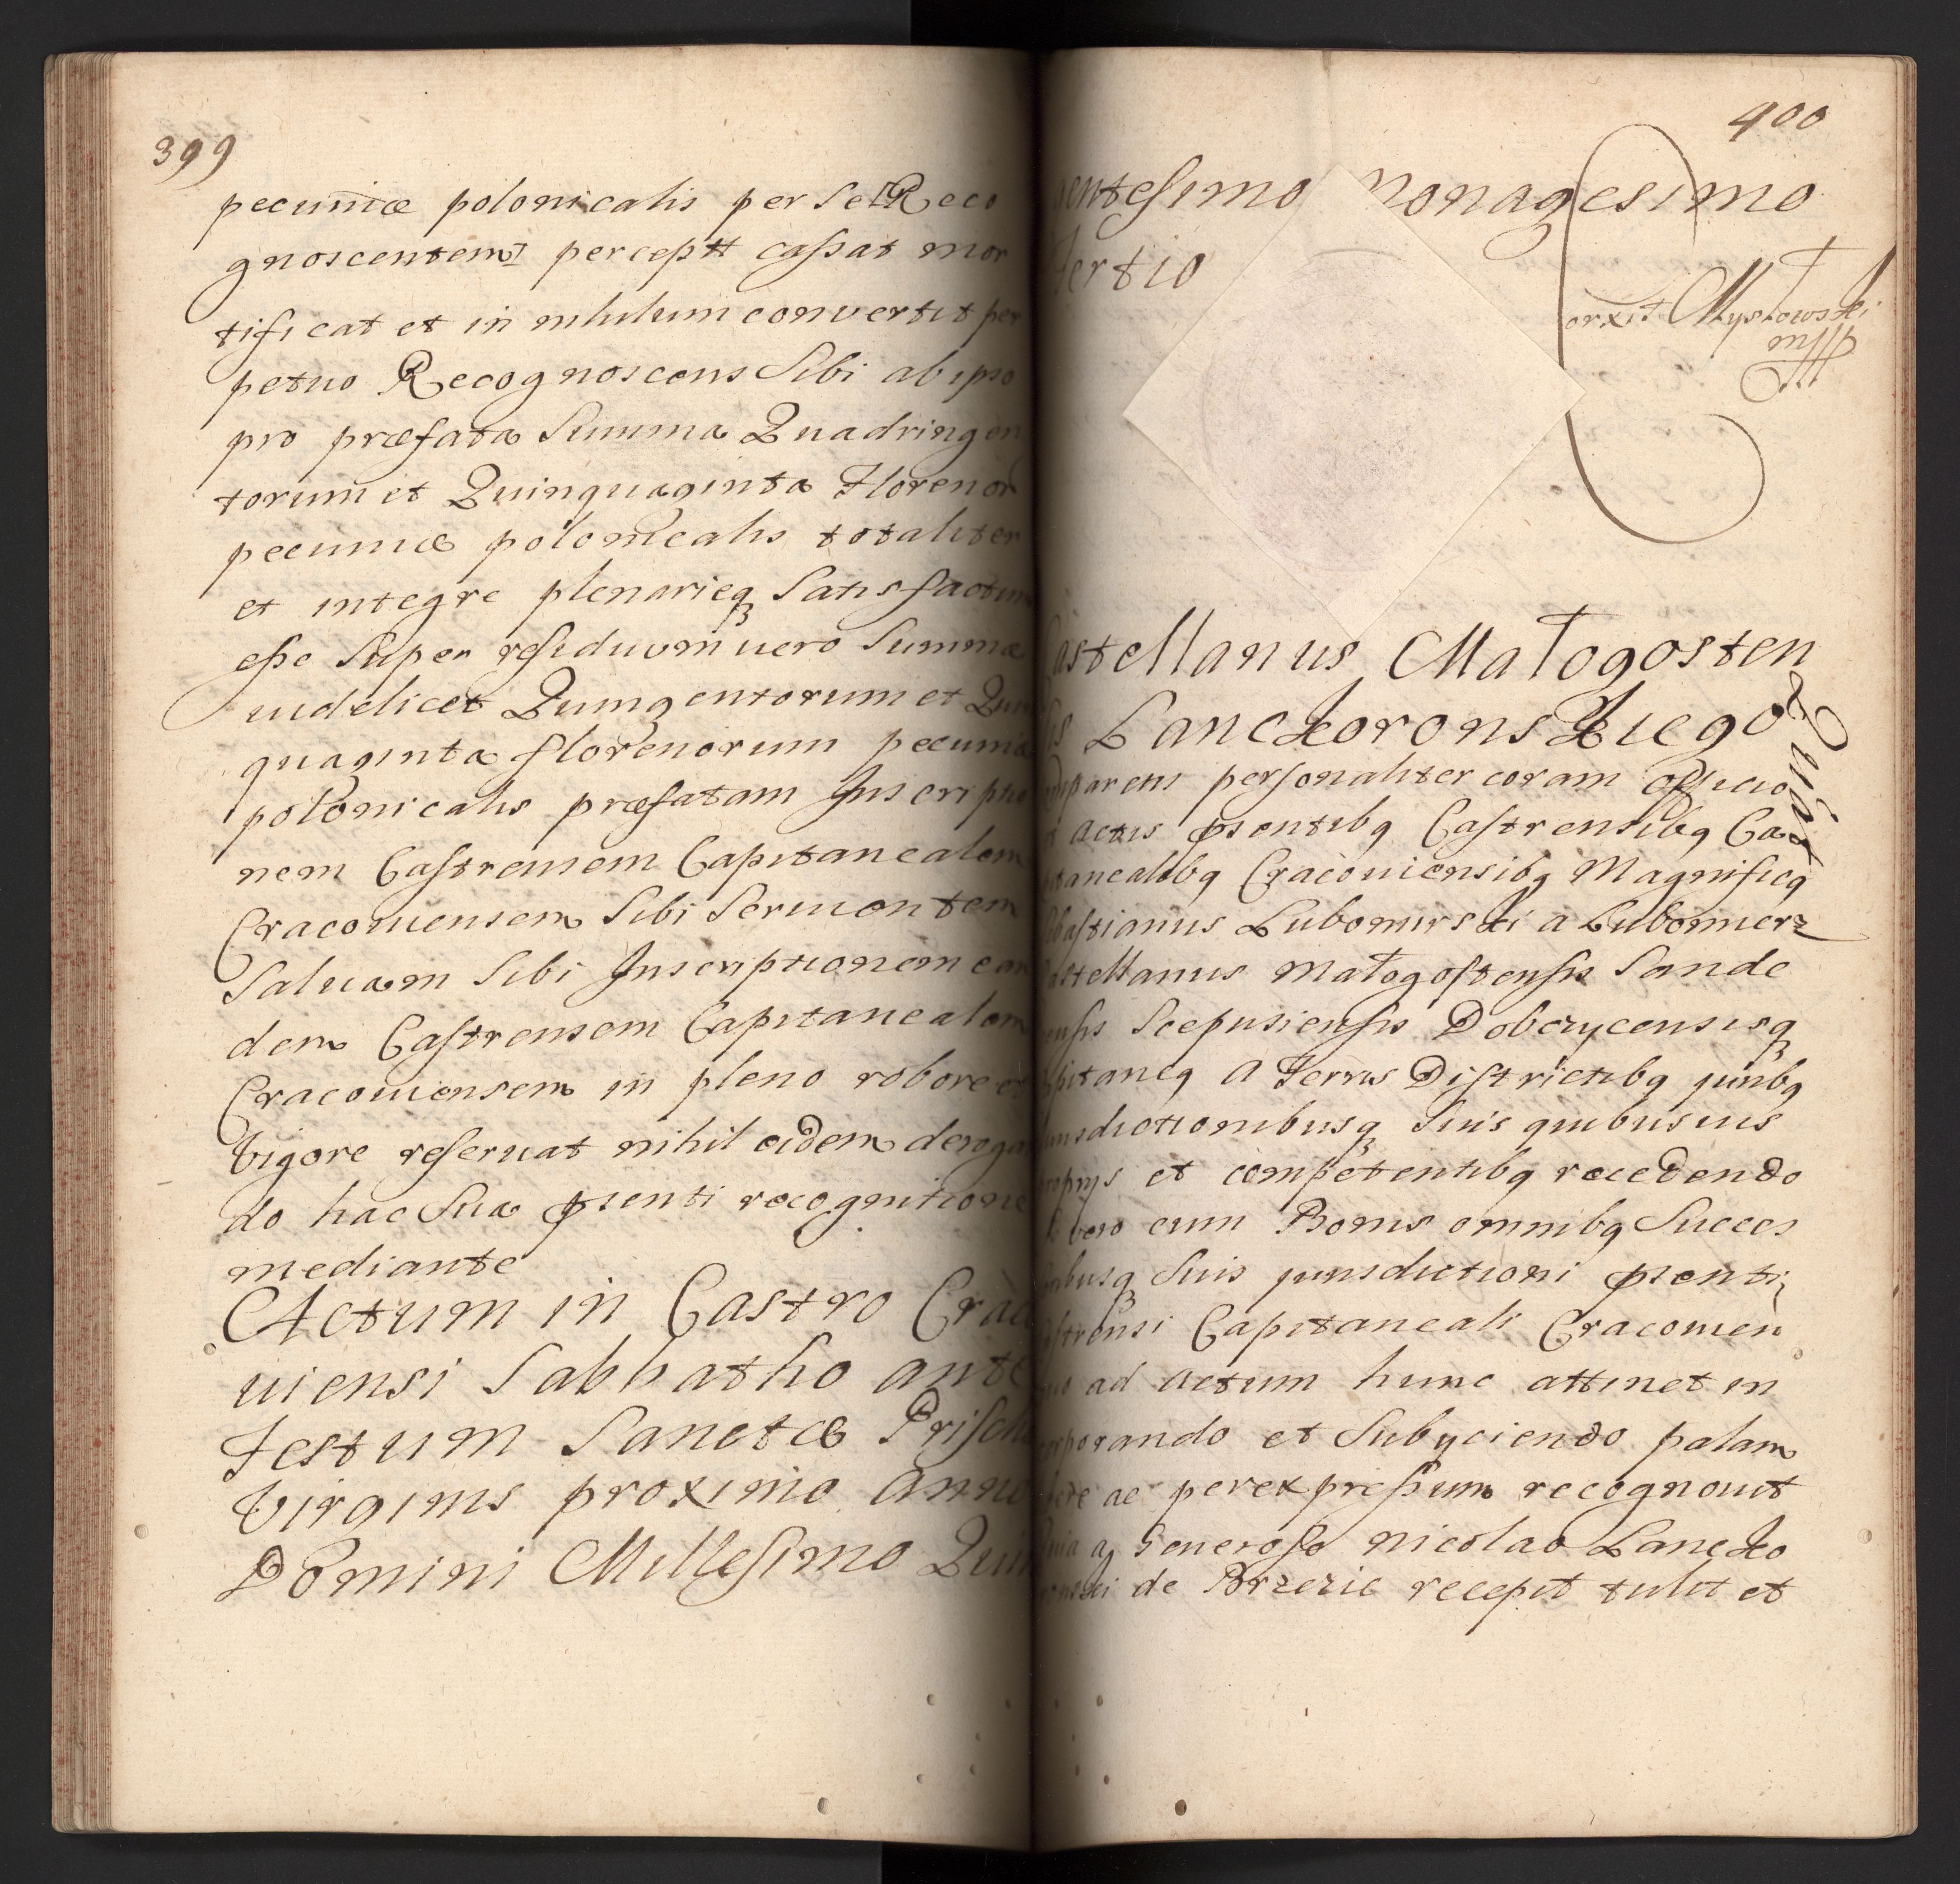 399
pecuniæ polonicalis per se Reco
gnoscentem percept cassat mor
tificat et in nihilum convertit per
petuo Recognoscens Sibi ab ipso
pro præfata Summa Quadringen
torum et Quinquaginta Florenor
pecuniæ polonicalis totaliter
et integre plenarieq Satisfactum
esse Super residuum uero Summæ
uidelicet Quingentorum et Quin
quaginta florenorum pecuniæ
polonicalis præfatam Inscriptio
nem Castrensem Capitanealem
Cracouiensem Sibi Seruientem
Saluam Sibi Inscriptionem ean
dem Castrensem Capitanealem
Cracouiensem in pleno robore et
vigore reseruat nihil eidem deroga
do hac Sua psenti recognitione
mediante
Actum in Castro Craco
uiensi Sabbatho ante
Festum Sanctæ Priscæ
Virginis proximo Anno
Domini Millesimo Quin
400
gentesimo Nonagesimo
Tertio
Castellanus Małogosten
sis Lanckoronskiego
Quietat
Comparens personaliter coram officio
et actis psentibq Castrensibq Ca
pitanealibq Cracouiensibq Magnificq
Sebastianus Lubomirski a Lubomierz
Castellanus Małogostensis Sande
censis Scepusiensis Dobczycensisq
Capitaneq A Terris Districtibq juribq
Jurisdictionibusq Suis quibusuis
proprys et competentibq recedendo
vero cum Bonis omnibq Succes
soribusq Suis jurisdictioni psenti
Castrensi Capitaneali Cracouien
quo ad actum hunc attinet in
corporando et Subyciendo palam
libere ac per expressum recognouit
Quia a Generoso Nicolao Lancko
ronski de Brzezie recepit tulit et